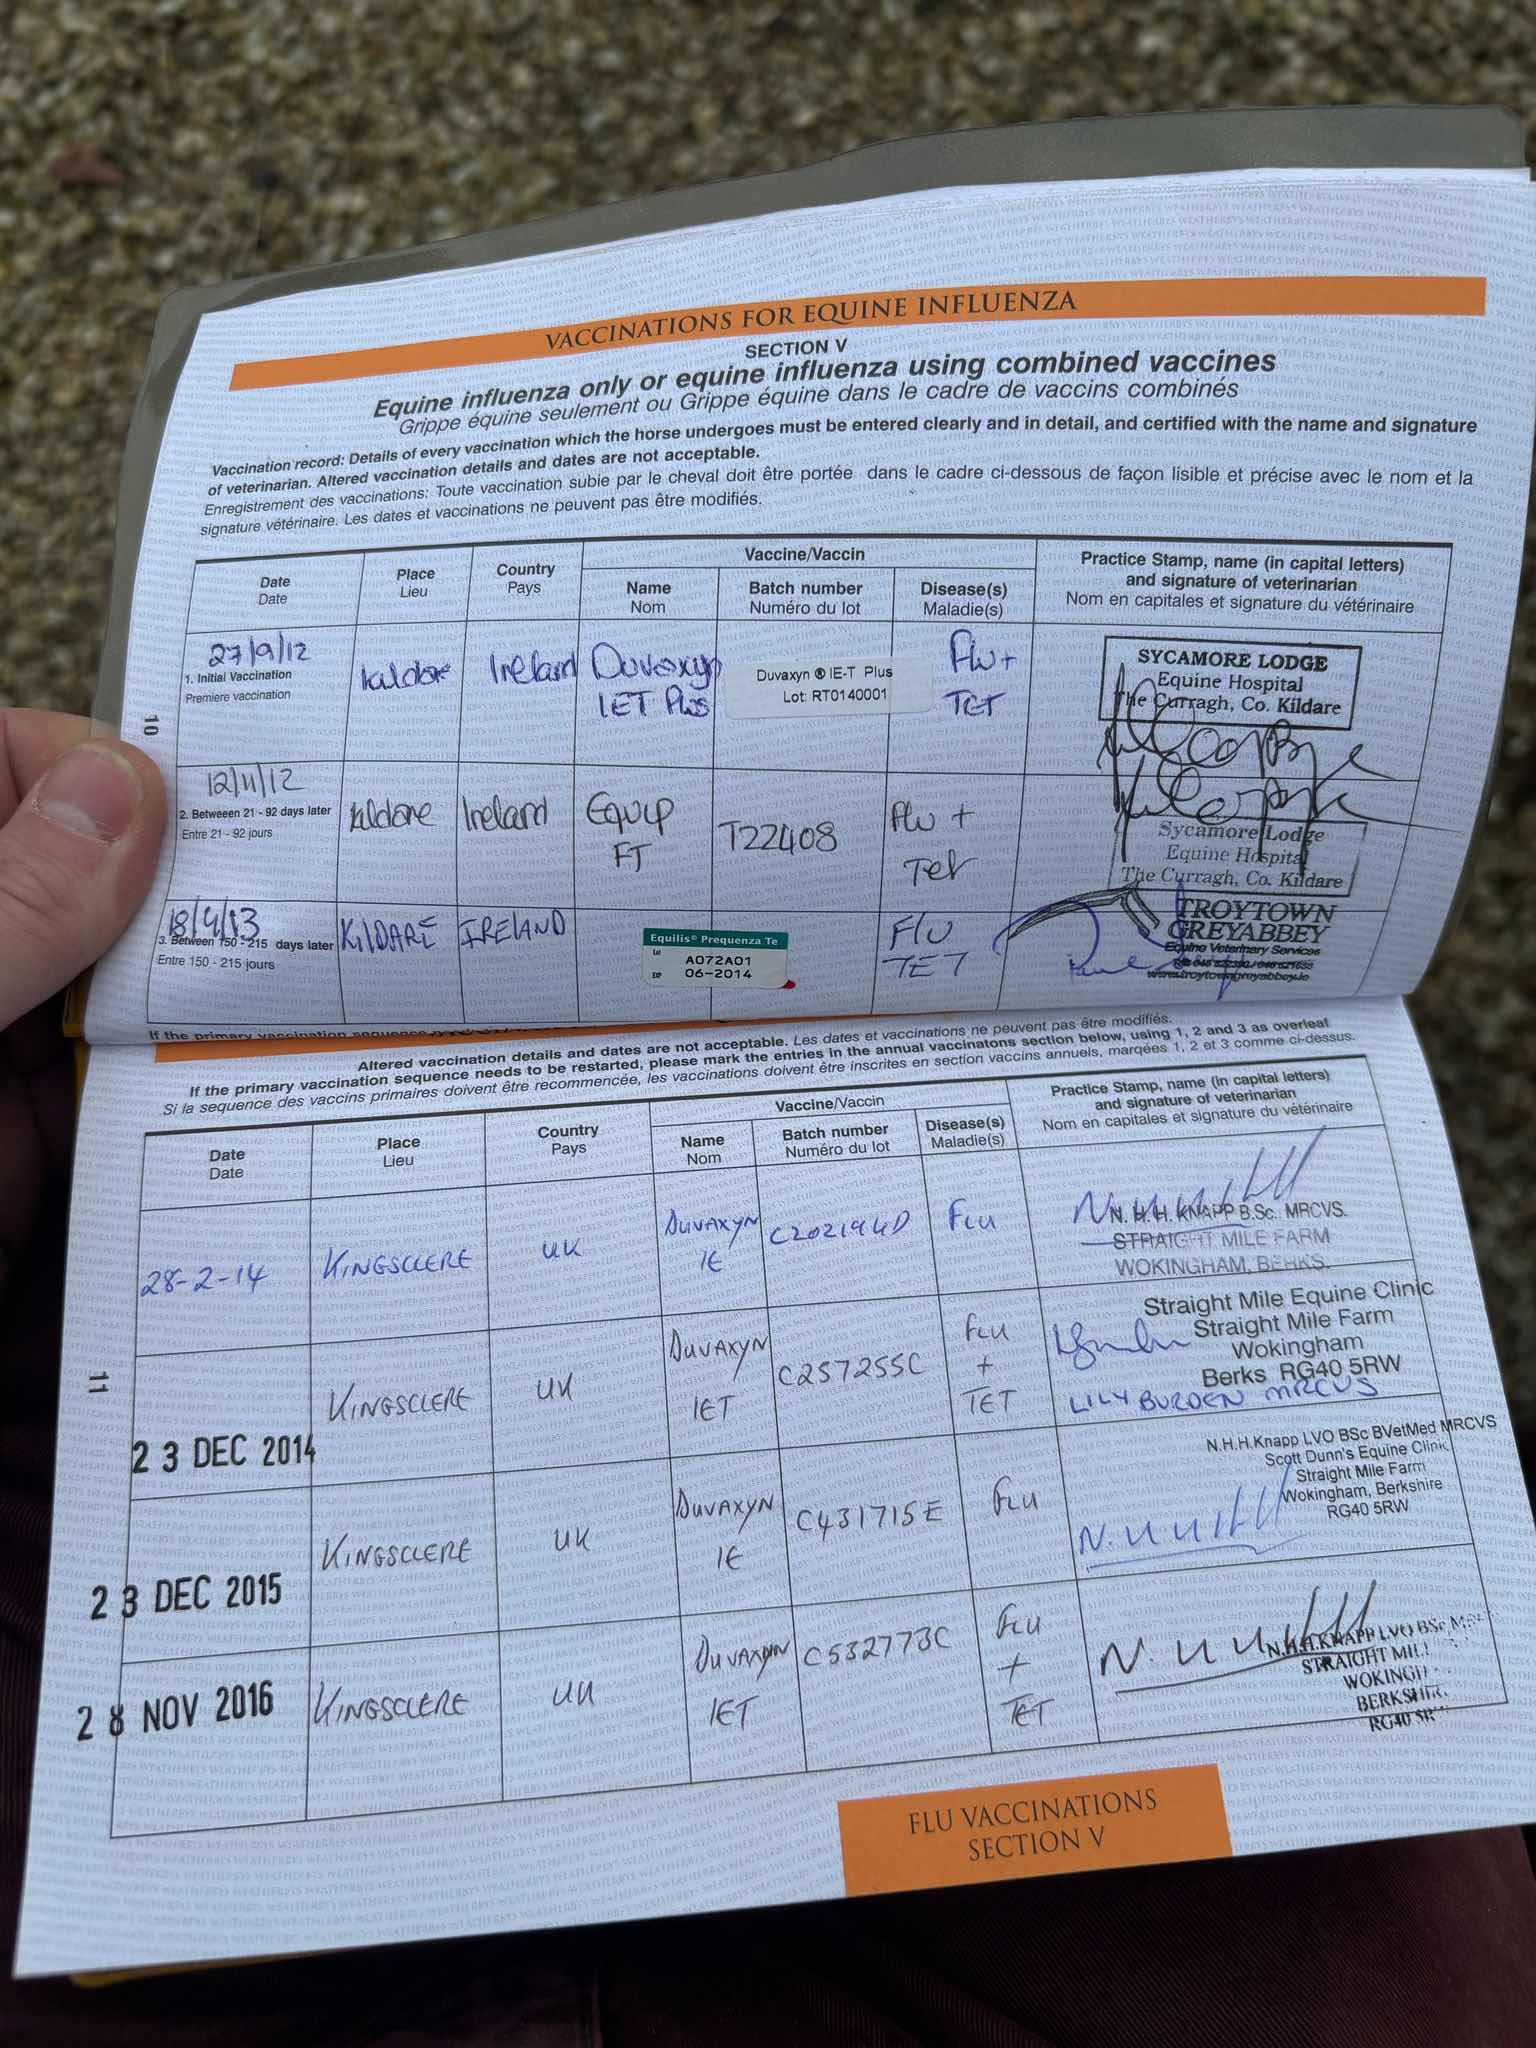 VACCINATIONS FOR EQUINE INFLUENZA
SECTION V
Equine influenza only or equine influenza using combined vaccines
Grippe équine seulement ou Grippe équine dans le cadre de vaccins combinés
Vaccination record: Details of every vaccination which the horse undergoes must be entered clearly and in detail, and certified with the name and signature
of veterinarian. Altered vaccination details and dates are not acceptable.
Enregistrement des vaccinations: Toute vaccination subie par le cheval doit être portée dans le cadre ci-dessous de façon lisible et précise avec le nom et la
signature vétérinaire. Les dates et vaccinations ne peuvent pas être modifiés.
Date
Date
Place
Lieu
Country
Pays
Vaccine/Vaccin
Name
Nom
Batch number
Numéro du lot
Disease(s)
Maladie(s)
Practice Stamp, name (in capital letters)
and signature of veterinarian
Nom en capitales et signature du vétérinaire
27/9/12
1. Initial Vaccination
Premiere vaccination
Kildare
Ireland
Duvaxyn
IET Plus
Duvaxyn ® IE-T Plus
Lot: RT0140001
Flu +
TET
SYCAMORE LODGE
Equine Hospital
The Curragh, Co. Kildare
12/11/12
2. Betweeen 21 - 92 days later
Entre 21 - 92 jours
Kildare
Ireland
Equip
FT
T22408
Flu +
Tet
Sycamore Lodge
Equine Hospital
The Curragh, Co. Kildare
18/4/13
3. Between 150 - 215 days later
Entre 150 - 215 jours
KILDARE
IRELAND
Equilis® Prequenza Te
Lot
A072A01
EXP
06-2014
FLU
TET
TROYTOWN
GREYABBEY
Equine Veterinary Services
www.troytowngreyabbey.ie
10
If the primary vaccination sequence
Altered vaccination details and dates are not acceptable. Les dates et vaccinations ne peuvent pas être modifiés.
If the primary vaccination sequence needs to be restarted, please mark the entries in the annual vaccinatons section below, using 1, 2 and 3 as overleaf
Si la sequence des vaccins primaires doivent être recommencée, les vaccinations doivent être inscrites en section vaccins annuels, marqées 1, 2 et 3 comme ci-dessus.
Date
Date
Place
Lieu
Country
Pays
Vaccine/Vaccin
Name
Nom
Batch number
Numéro du lot
Disease(s)
Maladie(s)
Practice Stamp, name (in capital letters)
and signature of veterinarian
Nom en capitales et signature du vétérinaire
28-2-14
KINGSCLERE
UK
DUVAXYN
IE
C202194D
FLU
N. H. H. KNAPP B.Sc. MRCVS.
STRAIGHT MILE FARM
WOKINGHAM, BERKS.
23 DEC 2014
KINGSCLERE
UK
DUVAXYN
IET
C257255C
FLU
+
TET
Straight Mile Equine Clinic
Straight Mile Farm
Wokingham
Berks RG40 5RW
LILY BURDEN MRCVS
23 DEC 2015
KINGSCLERE
UK
DUVAXYN
IE
C431715E
FLU
N.H.H.Knapp LVO BSc BVetMed MRCVS
Scott Dunn's Equine Clinic
Straight Mile Farm
Wokingham, Berkshire
RG40 5RW
28 NOV 2016
KINGSCLERE
UK
DUVAXYN
IET
C532773C
FLU
+
TET
N.H.H.KNAPP LVO BSc
STRAIGHT MILE
11
FLU VACCINATIONS
SECTION V